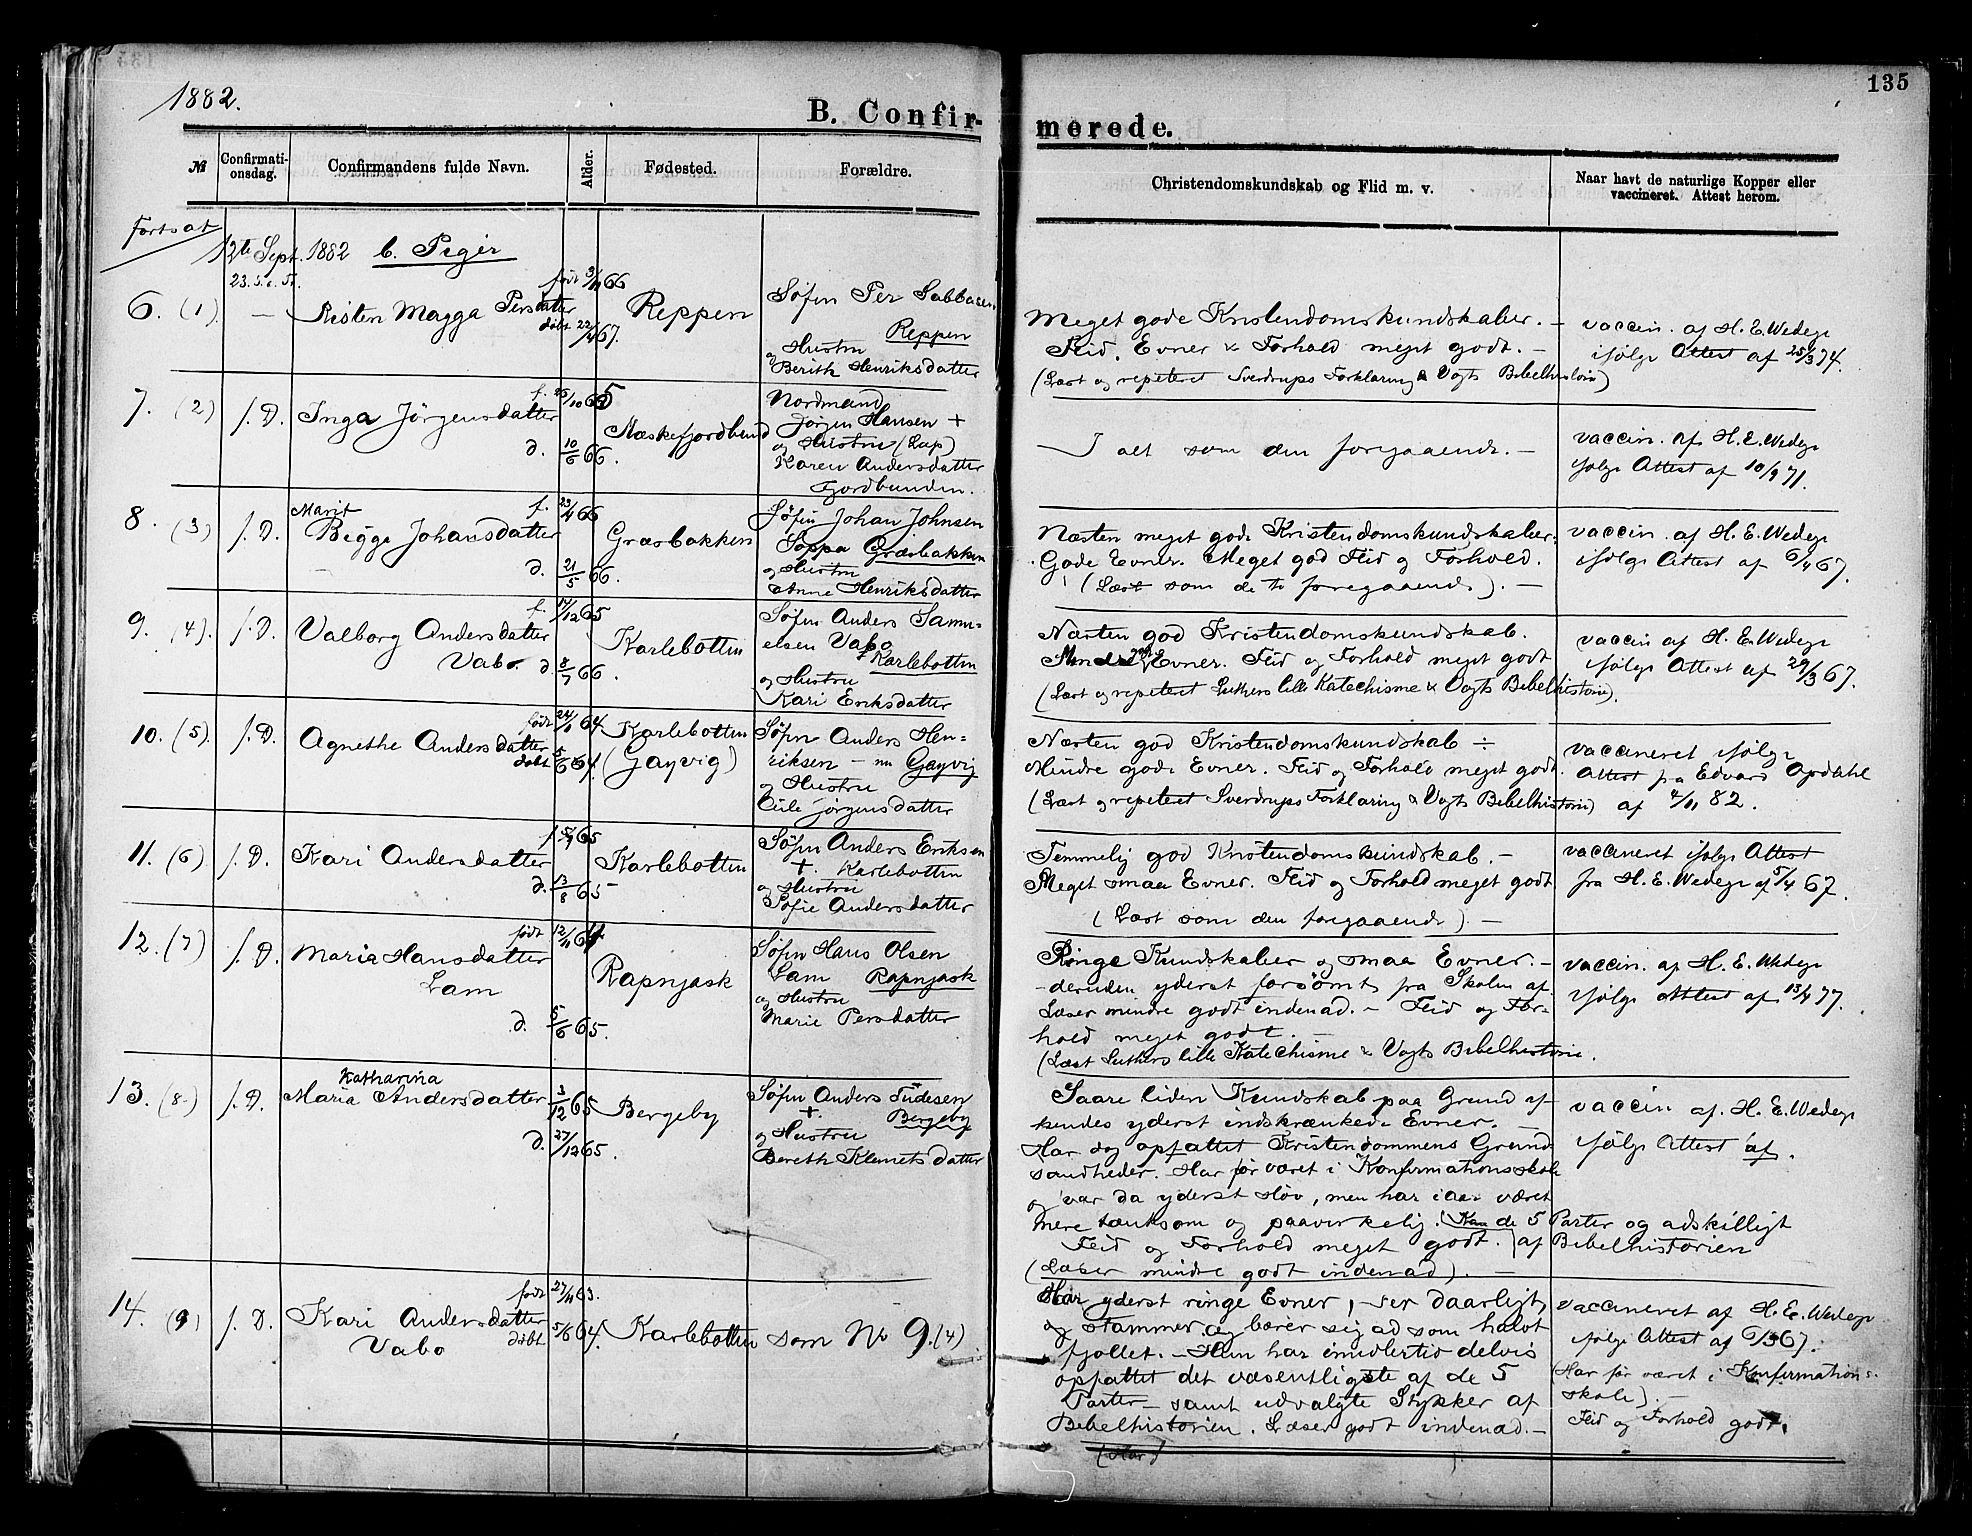 135
1882.
B. Confirmerede.
№
Confirmationsdag.
Confirmandens fulde Navn.
Alder.
Fødested.
Forældre.
Christendomskundskab og Flid m. v.
Naar havt de naturlige Kopper eller
vaccineret. Attest herom.
Fortsat
12te Sept. 1882 b. Piger
23. s. e. P.
6. (1). —
Risten Magga Persdatter
født 3/11 66
døbt 22/4 67.
Reppen
Søfin Per Sabbasen
Reppen
og Hustru
Berith Henriksdatter
Meget gode Kristendomskundskaber. —
Flid, Evner & Forhold meget godt. —
(Læst og repeteret Sverdrups Forklaring & Vogts Bibelhistorie)
vaccin. af H. E. Wedege
ifølge Attest af 25/3 74.
7. (2) s. D.
Inga Jörgensdatter
f. 26/10 65
d. 10/6 66.
Mæskefjordbund
Nordmand
Jörgen Hansen +
og Hustru (Lap)
Karen Andersdatter
Fjordbunden.
— I alt som den foregaaende. —
vaccin. af H. E. Wedege
ifølge Attest af 10/9 71.
8. (3) s. D.
Marit
Bigge Johansdatter
f. 23/4 66
d. 21/5 66.
Græsbakken
Søfin Johan Johnsen
Soppa Græsbakken
og Hustru
Anne Henriksdatter
Næsten meget gode Kristendomskundskaber.
Gode Evner. Meget god Flid og Forhold.
(Læst som de to foregaaende). —
vaccin. af H. E. Wedege
ifølge Attest af 6/4 67.
9. (4). s. D.
Valborg Andersdatter
Vabo
f. 17/12 65
d. 8/7 66.
Karlebotten
Søfin Anders Samu-
elsen Vabo
Karlebotten
og Hustru
Kari Eriksdatter
Næsten god Kristendomskundskab.
Mindre gode Evner. Flid og Forhold meget godt
(Læst og repeteret Luthers lille Katechisme & Vogts Bibelhistorie).
vaccin af H. E. Wedege
ifølge Attest af 29/3 67.
10. (5). s. D.
Agnethe Andersdatter
født 24/1 64.
døbt 5/6 64.
Karlebotten
(Gayvig)
Søfin Anders Hen-
riksen — nu Gayvig
og Hustru
Jörgensdatter
Næsten god Kristendomskundskab ÷
Mindre gode Evner. Flid og Forhold meget godt.
(Læst og repeteret Sverdrups Forklaring & Vogts Bibelhistorie)
vaccineret ifølge
Attest fra Edvard Opdahl
af 4/11 82.
11. (6) s. D.
Kari Andersdatter
65
d. 13/8 65
Karlebotten
Søfin Anders Eriksen
+. Karlebotten
og Hustru
Sofie Andersdatter
Temmelig god Kristendomskundskab. —
Meget smaa Evner. Flid og Forhold meget godt
(Læst som den foregaaende) —
vaccineret ifølge Attest
fra H. E. Wedege af 5/4 67.
12. (7) s. D.
Maria Hansdatter
Lam
født 12/11 64
d. 5/6 65.
Rapnjask
Søfin Hans Olsen
Lam Rapnjask
og Hustru
Marie Persdatter
Ringe Kundskaber og smaa Evner. —
— desuden yderst forsömt fra Skolen af.
Læser mindre godt indenad. — Flid og For-
hold meget godt. —
(Læst Luthers lille Katechisme & Vogts Bibelhistorie.
vaccin. af H. E. Wedege
ifølge Attest af 13/4 77.
13. (8.) s. D.
Katharina
Maria Andersdatter
3/12 65
d. 27/12 65.
Bergeby
Søfin Anders Tudesen
+. Bergeby
og Hustru
Bereth Klemetsdatter
Saare liden Kundskab paa Grund af
hendes yderst indskrænkede Evner. —
Har dog opfattet Kristendommens Grund-
sandheder. Har før været i Konfirmationsskole
og var da yderst sløv, men har iaar været
mere tænksom og paavirkelig. (Kan de 5 Parter og adskilligt
Flid og Forhold meget godt. af Bibelhistorien
(Læser mindre godt indenad). —
vaccin af. H. E. Wedege
ifølge Attest af.
14. (9) s. D.
Kari Andersdatter
Vabo
født 27/11 63.
døbt 5/6 64.
Karlebotten
som No 9. (4)
Har yderst ringe Evner, ser daarligt,
og stammer, og bærer sig ad som halvt
fjollet. — Hun har imidlertid delvis
opfattet det væsentligste af de 5
Parter — samt udvalgte Stykker af
Bibelhistorien. Læser godt indenad. —
(Har)
vaccineret af H. E. Wedege
ifølge Attest af 6/3 67.
(Har før været i Konfirmations-
skole). —
Flid og Forhold godt.